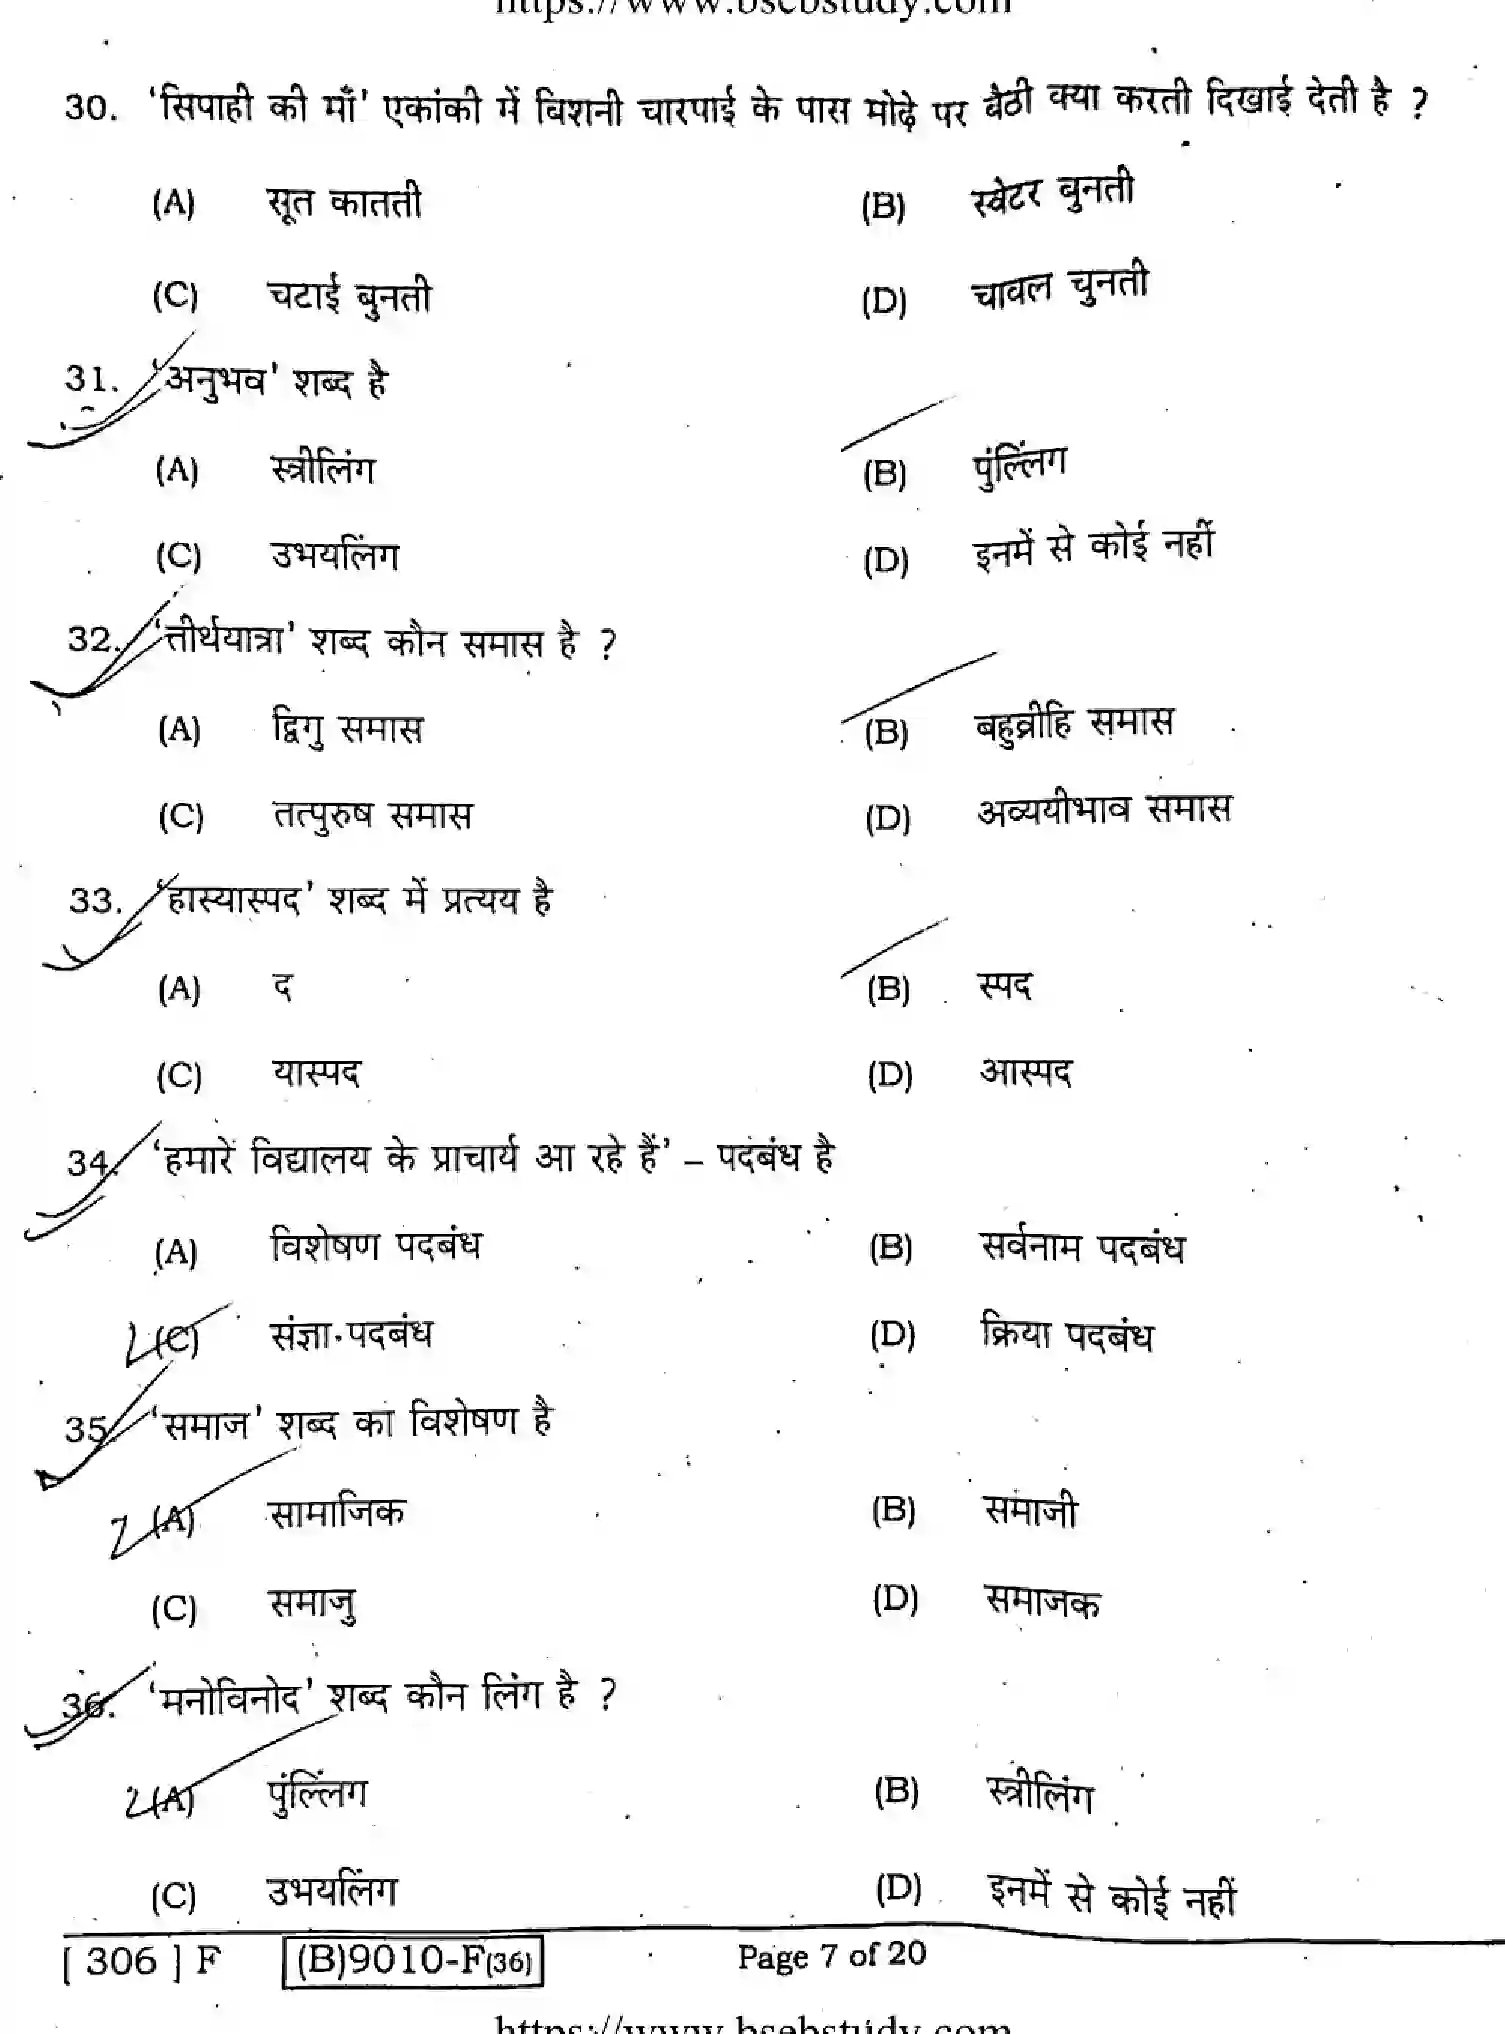 https://www.bsebstudy.com
30. 'सिपाही की माँ' एकांकी में बिशनी चारपाई के पास मोढ़े पर बैठी क्या करती दिखाई देती है ?
(A) सूत कातती (B) स्वेटर बुनती
(C) चटाई बुनती (D) चावल चुनती
31. 'अनुभव' शब्द है
(A) स्त्रीलिंग (B) पुंल्लिंग
(C) उभयलिंग (D) इनमें से कोई नहीं
32. 'तीर्थयात्रा' शब्द कौन समास है ?
(A) द्विगु समास (B) बहुव्रीहि समास
(C) तत्पुरुष समास (D) अव्ययीभाव समास
33. 'हास्यास्पद' शब्द में प्रत्यय है
(A) द (B) स्पद
(C) यास्पद (D) आस्पद
34. 'हमारे विद्यालय के प्राचार्य आ रहे हैं' – पदबंध है
(A) विशेषण पदबंध (B) सर्वनाम पदबंध
(C) संज्ञा पदबंध (D) क्रिया पदबंध
35. 'समाज' शब्द का विशेषण है
(A) सामाजिक (B) समाजी
(C) समाजु (D) समाजक
36. 'मनोविनोद' शब्द कौन लिंग है ?
(A) पुंल्लिंग (B) स्त्रीलिंग
(C) उभयलिंग (D) इनमें से कोई नहीं
[ 306 ] F (B)9010-F(36) Page 7 of 20
https://www.bsebstudy.com